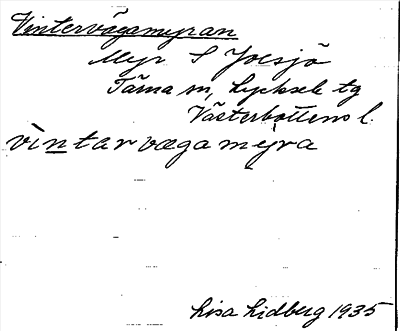 Vintervägamyran
Myr S Joesjö
Tärna sn, Lycksele tg
Västerbottens l.
vintarvægamyra
Lisa Lidberg 1935